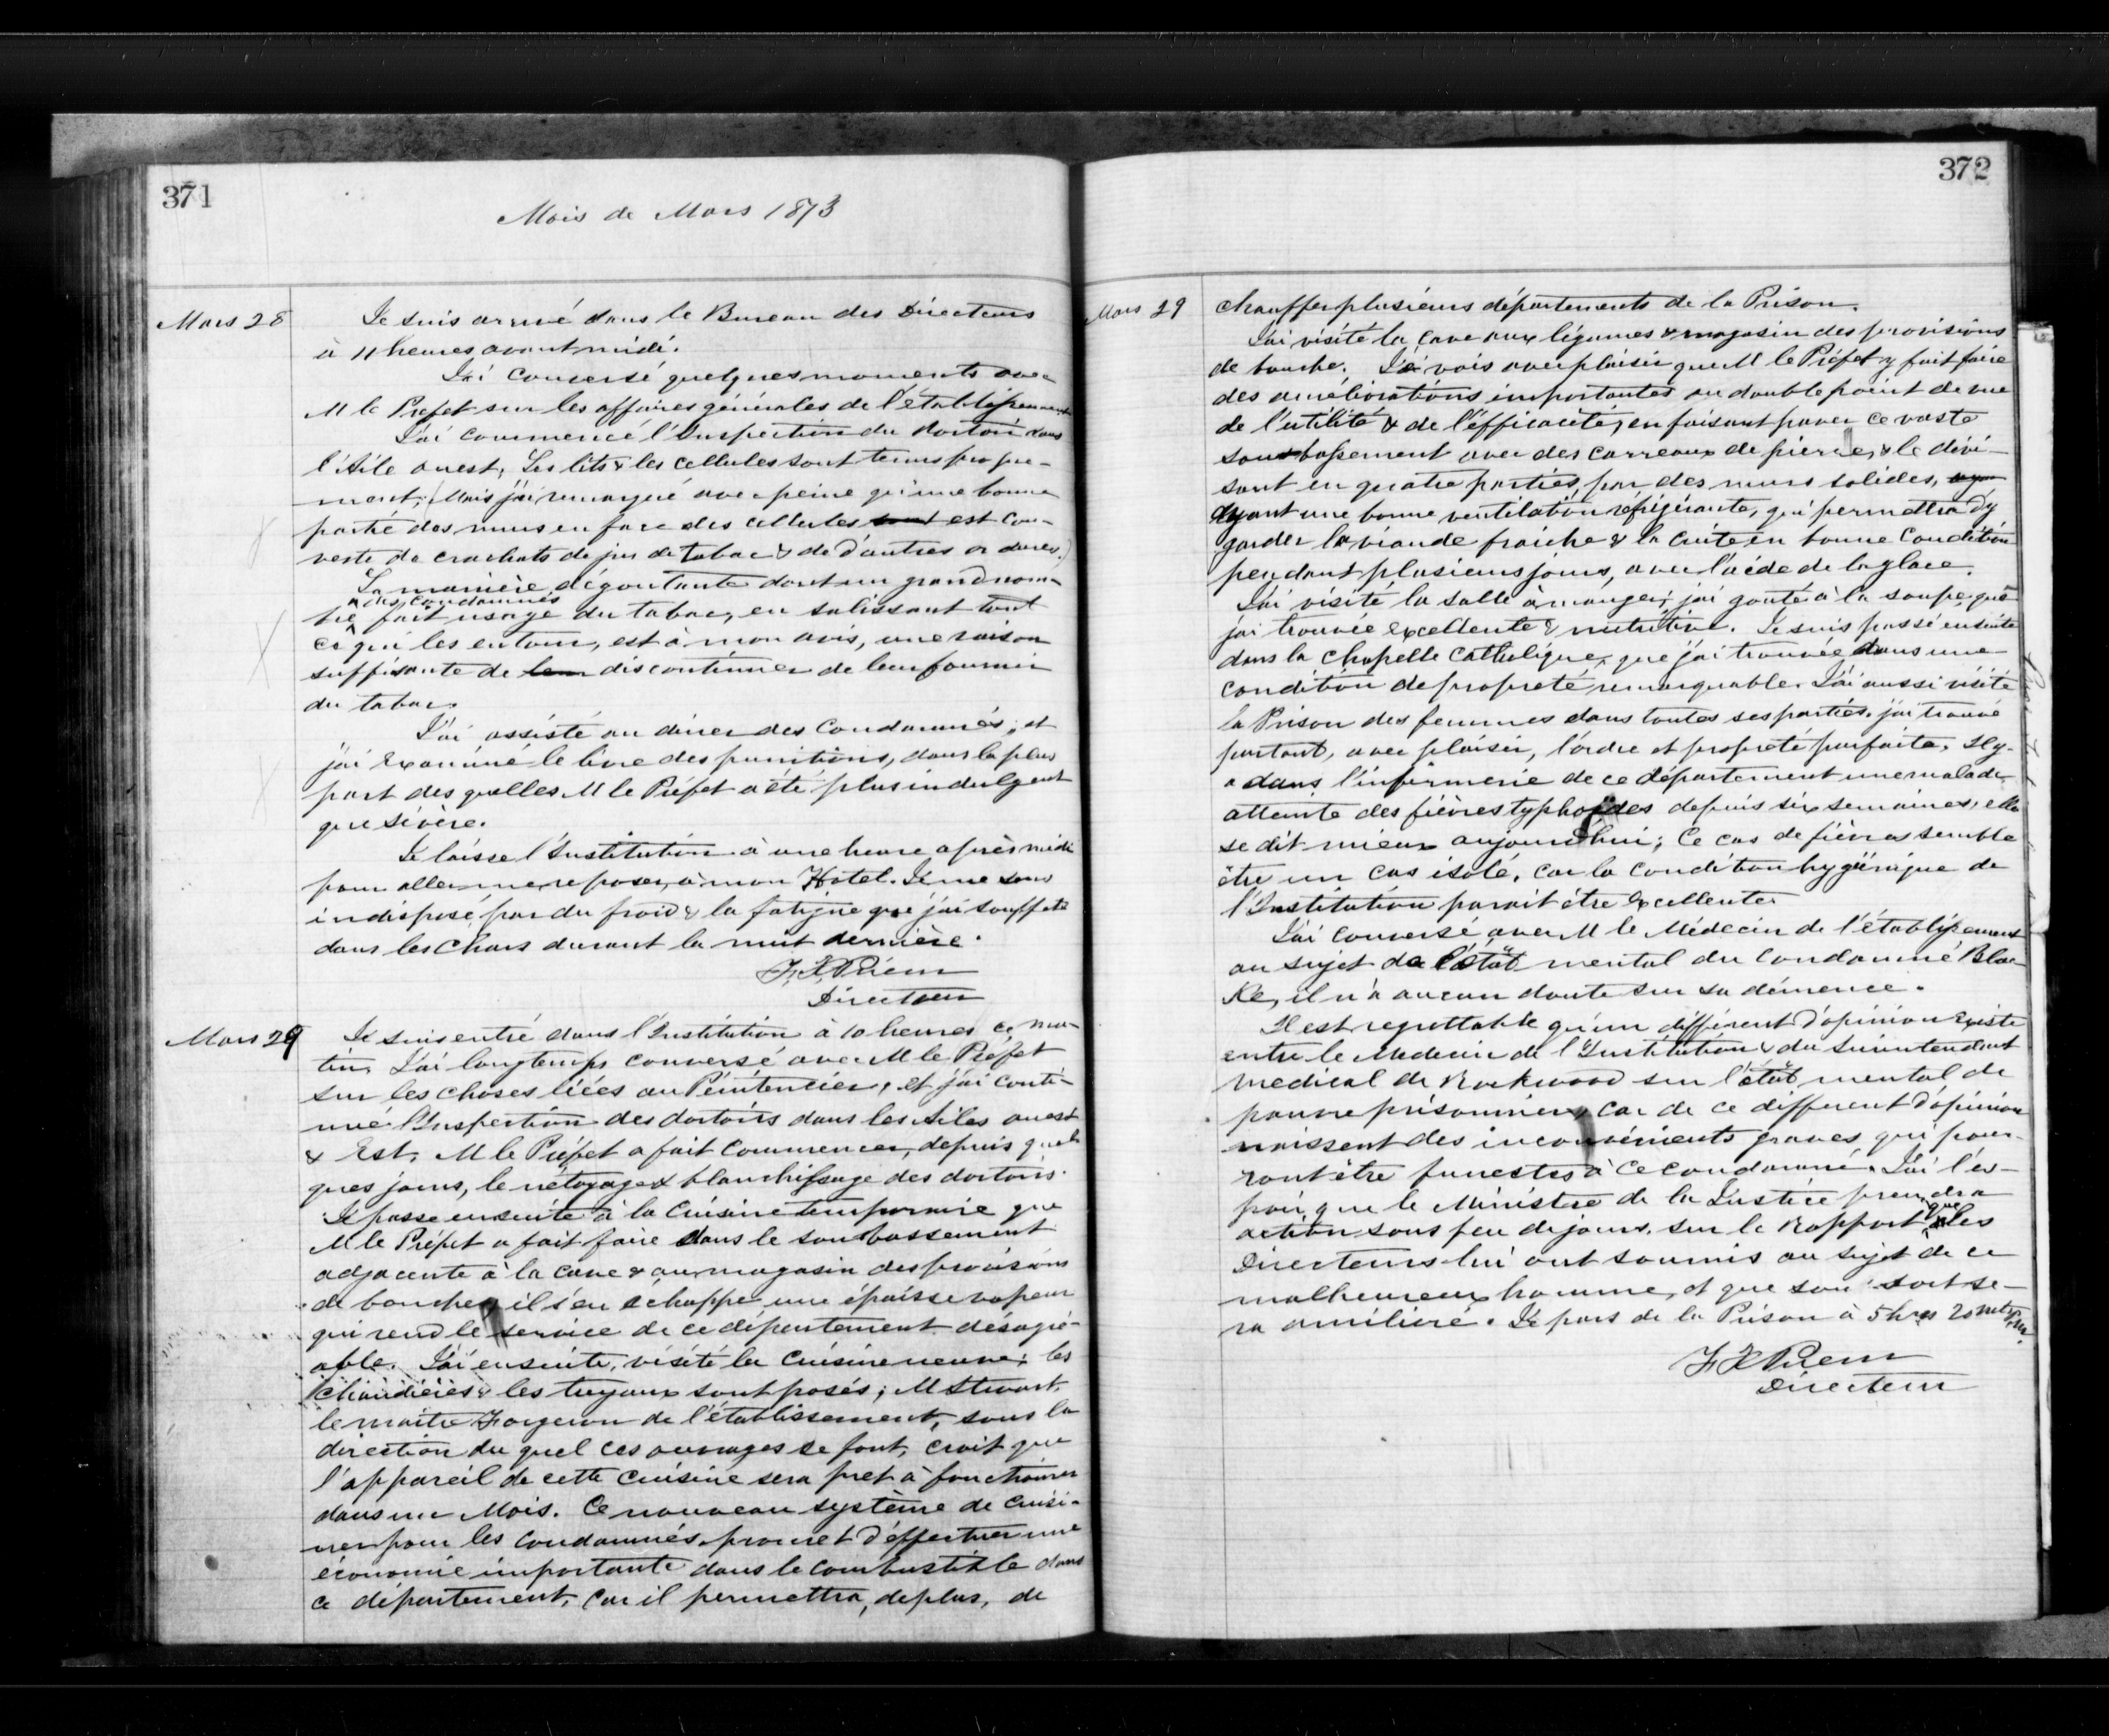 371
Mois de Mars 1873
Mars 28
Je suis arrivé dans le Bureau des Directeurs
à 11 heures avant midi.
J'ai conversé quelques moments avec
M le Prefet sur les affaires générales de l'établissement
J'ai commencé l'Inspection du Dortoir dans
l'Aile ouest, Les lits & les cellules sont tenus propre-
ment; (Mais j'ai remarqué avec peine qu'une bonne
partie des murs en face des cellules sont est cou-
verte de crachats de jus de tabac & de d'autres ordures.)
La manière dégoutante dont un grand nom-
bre des condamnés fait usage du tabac, en salissant tout
ce qui les entoure, est à mon avis, une raison
suffisante de leur discontinuer de leur fournir
du tabac.
J'ai assisté au diner des Condamnés, et
j'ai examiné le livre des punitions, dans la plus
part des quelles M le Préfet a été plus indulgent
que sévère.
Je laisse l'Institution à une heure après midi
pour aller me reposer, à mon Hotel. Je me sens
indisposé par du froid & la fatigue que j'ai souffert
dans les Chars durant la nuit dernière.
F. X Priem
Directeur
Mars 29
Je suis entré dans l'Institution à 10 heures ce ma-
tin. J'ai longtemps conversé avec M le Préfet
sur les choses liées au Pénitencier, et j'ai conti-
nué l'Inspection des dortoirs dans les Ailes ouest
& Est. M le Préfet a fait commencer, depuis quel
ques jours, le nétoyage & blanchissage des dortoirs.
Je passe ensuite à la Cuisine temporaire que
M le Préfet a fait faire dans le soubassement
adjacente à la cave & au magasin des provisions
de bouche, il s'en échappe une épaisse vapeur
qui rend le service de ce département désagré-
able. J'ai ensuite, visité la Cuisine neuve; les
Chaudières & les tuyaux sont posés; M Stewart,
le maitre Forgeron de l'établissement, sous la
direction du quel ces ouvrages se font, croit que
l'appareil de cette cuisine sera pret à fonctionner
dans un Mois. Ce nouveau système de cuisi-
ner pour les condamnés promet d'éffectuer une
économie importante dans le combustible dans
ce département, car il permettra, de plus, de
372
Mars 29
chauffer plusieurs départements de la Prison.
J'ai visité la cave aux légumes & magasin des provisions
de bouche. Je vois avec plaisir que M le Préfet y fait faire
des améliorations importantes au double point de vue
de l'utilité & de l'éfficacité, en faisant paver ce vaste
soubassement avec des carreaux de pierre, & le divi-
sant en quatre parties, par des murs solides,
ayant une bonne ventilation réfrigérante, qui permettra d'y
garder la viande fraiche & la cuite en bonne condition
pendant plusieurs jours, avec l'aide de la glace.
J'ai visité la salle à manger; j'ai gouté à la soupe que
j'ai trouvée excellente & nutritive. Je suis passé ensuite
dans la Chapelle Catholique, que j'ai trouvée dans une
condition de propreté remarquable. J'ai aussi visité
la Prison des femmes dans toutes ses parties. j'ai trouvé
partout, avec plaisir, l'ordre et propreté parfaite. Il y-
a dans l'infirmerie de ce département une malade
atteinte des fièvres typhoïdes depuis six semaines, elle
se dit mieux aujourd'hui; Ce cas de fièvres semble
être un cas isolé, car la condition hygiénique de
l'Institution parait être excellente.
J'ai conversé avec M le Médecin de l'établissement
au sujet de l'état mental du Condamné Blac
Ke, il n'a aucun doute sur sa démence.
Il est regrettable qu'un différent d'opinion existe
entre le Medecin de l'Institution & du Surintendant
medical de Rockwood sur l'état mental de
pauvre prisonnier, car de ce different d'opinion
naissent des inconvénients graves qui pour-
ront être funestes à ce condamné. J'ai l'es-
poir que le Ministre de la Justice prendra
action sous peu de jours, sur le Rapport que les
Directeurs lui ont soumis au sujet de ce
malheureux homme, et que son sort se-
ra amélioré. Je pars de la Prison à 5 hrs 20 mts P.M.
F X Priem
Directeur